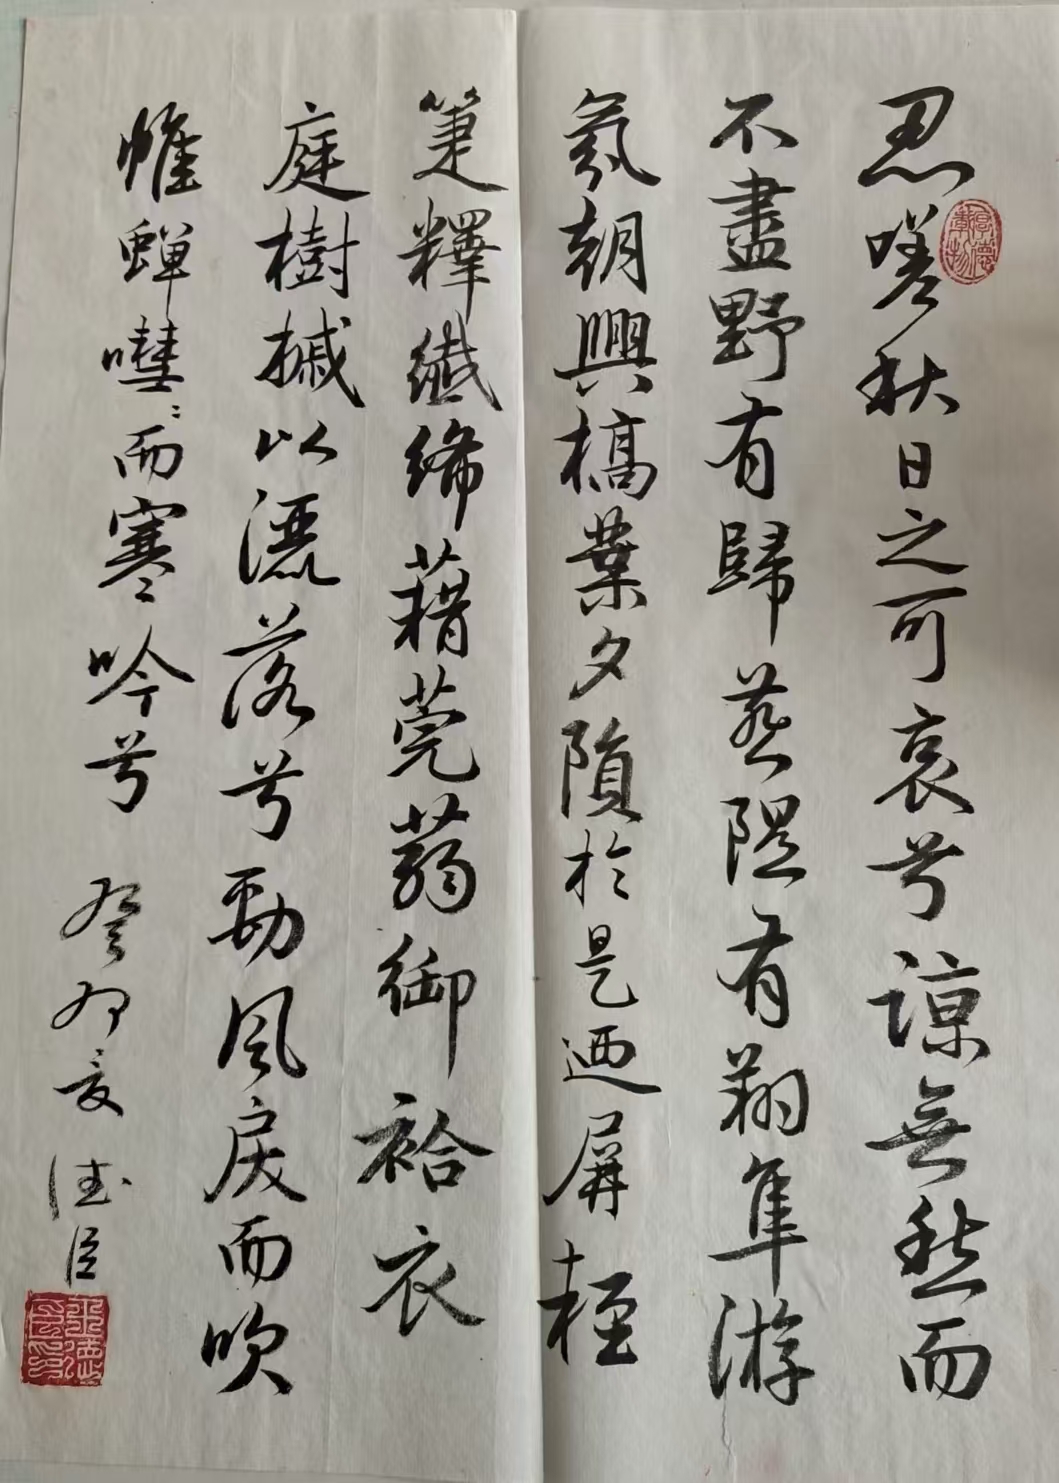 忍嗟秋日之可哀兮諒無愁而
不盡野有歸燕隰有翔隼游
氛朝興槁葉夕隕於是迺屏輕
箑釋纖絺藉莞蒻御袷衣
庭樹摵以灑落兮勁風戾而吹
帷蟬嘒嘒而寒吟兮
癸卯夏 德臣